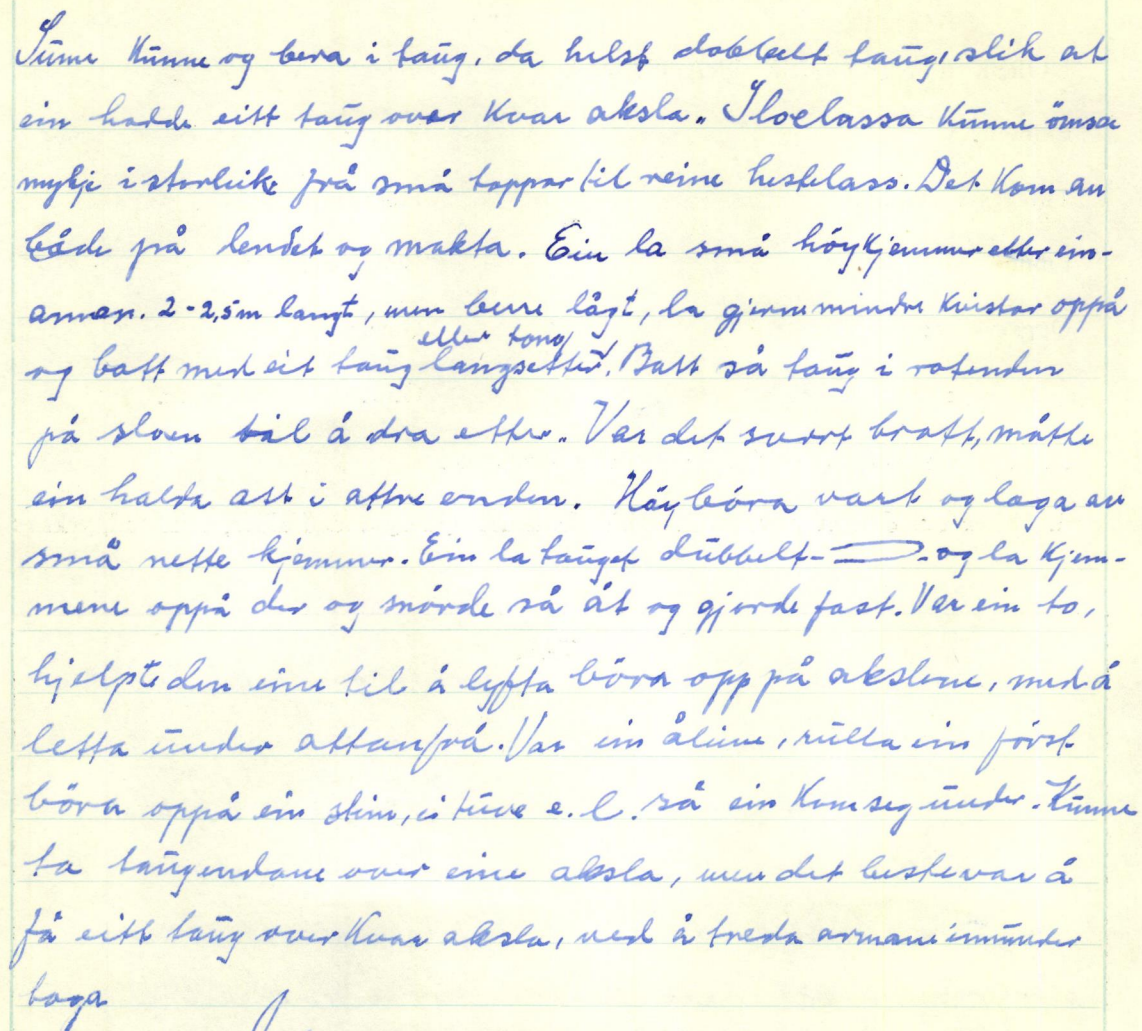 Sume kunne og bera i taug, da helst dobbelt taug, slik at
ein hadde eitt taug over kvar aksla. Sloelassa kunne ömsa
mykje i storleik frå små toppar til reine hestelass. Det kom an
både på lendet og makta. Ein la små höykjemmer etter ein-
annan. 2-2,5m langt, men berre lågt, la gjerne mindre kvistar oppå
og batt med eit taug eller tong langsetter. Batt så taug i rotenden
på sloen til å dra etter. Var det svert bratt, måtte
ein halda att i attre enden. Höybóra vart og laga av
små nette kjemmer. Ein la tauget dubbelt - - og la kjem-
mene oppå der og snórde så åt og gjorde fast. Var ein to,
hjelpte den eine til å lyfta bóra opp på akslene, med å
letta under attanfrå. Var ein åleine, rulla ein först
bóra oppå ein stein, ei tuve e.l. så ein kom seg under. Kunne
ta taugendane over eine aksla, men det beste var å
få eitt taug over kvar aksla, ved å treda armane innunder
toga